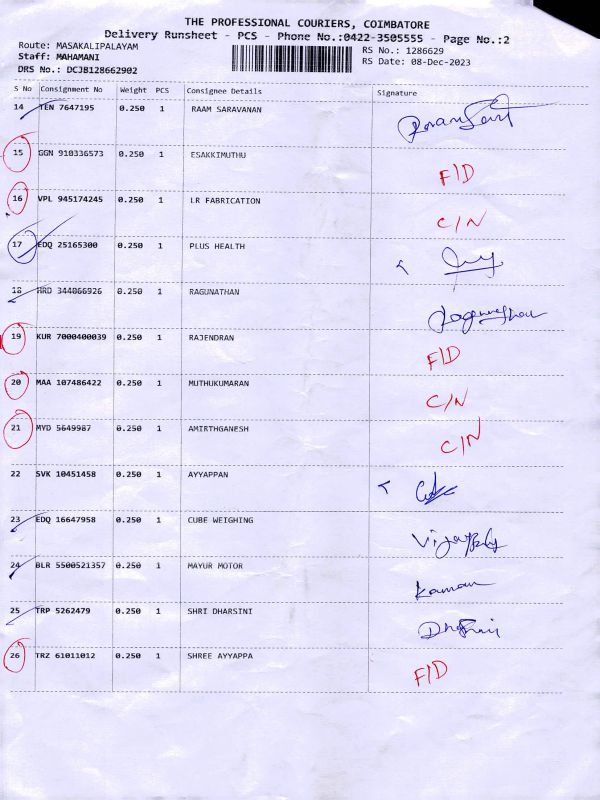 THE PROFESSIONAL COURIERS, COIMBATORE
Delivery Runsheet - PCS - Phone No.:0422-3505555 - Page No.:2
Route: MASAKALIPALAYAM RS No.: 1286629
Staff: MAHAMANI RS Date: 08-Dec-2023
DRS No.: DCJB128662902
S No Consignment No Weight PCS Consignee Details Signature
14 TEN 7647195 0.250 1 RAAM SARAVANAN
15 GGN 910336573 0.250 1 ESAKKIMUTHU F/D
16 VPL 945174245 0.250 1 LR FABRICATION C/N
17 EDQ 25165300 0.250 1 PLUS HEALTH
18 HRD 344066926 0.250 1 RAGUNATHAN
19 KUR 7000400039 0.250 1 RAJENDRAN F/D
20 MAA 107486422 0.250 1 MUTHUKUMARAN C/N
21 MYD 5649987 0.250 1 AMIRTHGANESH C/N
22 SVK 10451458 0.250 1 AYYAPPAN
23 EDQ 16647958 0.250 1 CUBE WEIGHING
24 BLR 5500521357 0.250 1 MAYUR MOTOR
25 TRP 5262479 0.250 1 SHRI DHARSINI
26 TRZ 61011012 0.250 1 SHREE AYYAPPA F/D